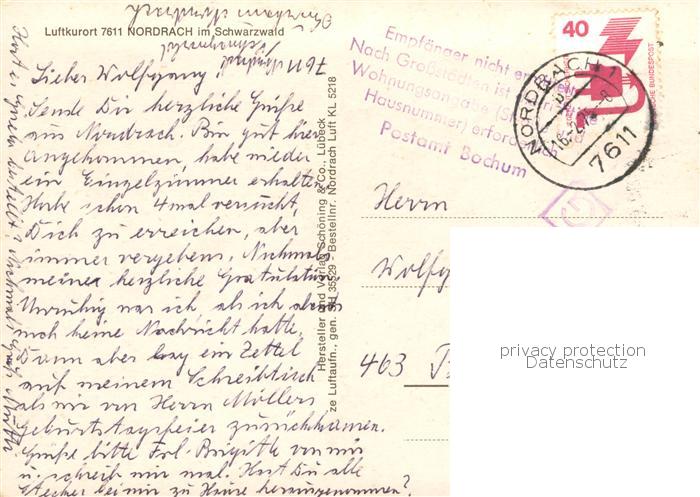 Luftkurort 7611 NORDRACH im Schwarzwald
7611
Lieber Wolfgang
Sende Dir herzliche Grüße
aus Nordrach. Bin gut hier
angekommen, habe wieder
ein Einzelzimmer erhalten
Habe schon 4mal versucht,
Dich zu erreichen, aber
immer vergebens, Nochmals
meine herzliche Gratulation
Unruhig war ich als ich abends
noch keine Nachricht hatte.
Dann aber lag ein Zettel
auf meinem Schreibtisch
als wir von Herrn Möllers
Geburtstagsfeier zurückkamen.
Grüße bitte Frl. Brigitte von mir
u. schreib mir mal. Hast Du alle
Stecker bei mir zu Hause herausgenommen?
Hersteller und Verlag Schöning & Co., Lübeck
ze Luftaufn., gen. SH 35529 - Bestellnr. Nordrach Luft KL 5218
Empfänger nicht
Nach Großstädten ist
Wohnungsangabe
Hausnummer) erforderlich
Postamt Bochum
40
DEUTSCHE BUNDESPOST
NORDRACH 1
7611
Herrn
Wolfg
463 B
privacy protection
Datenschutz